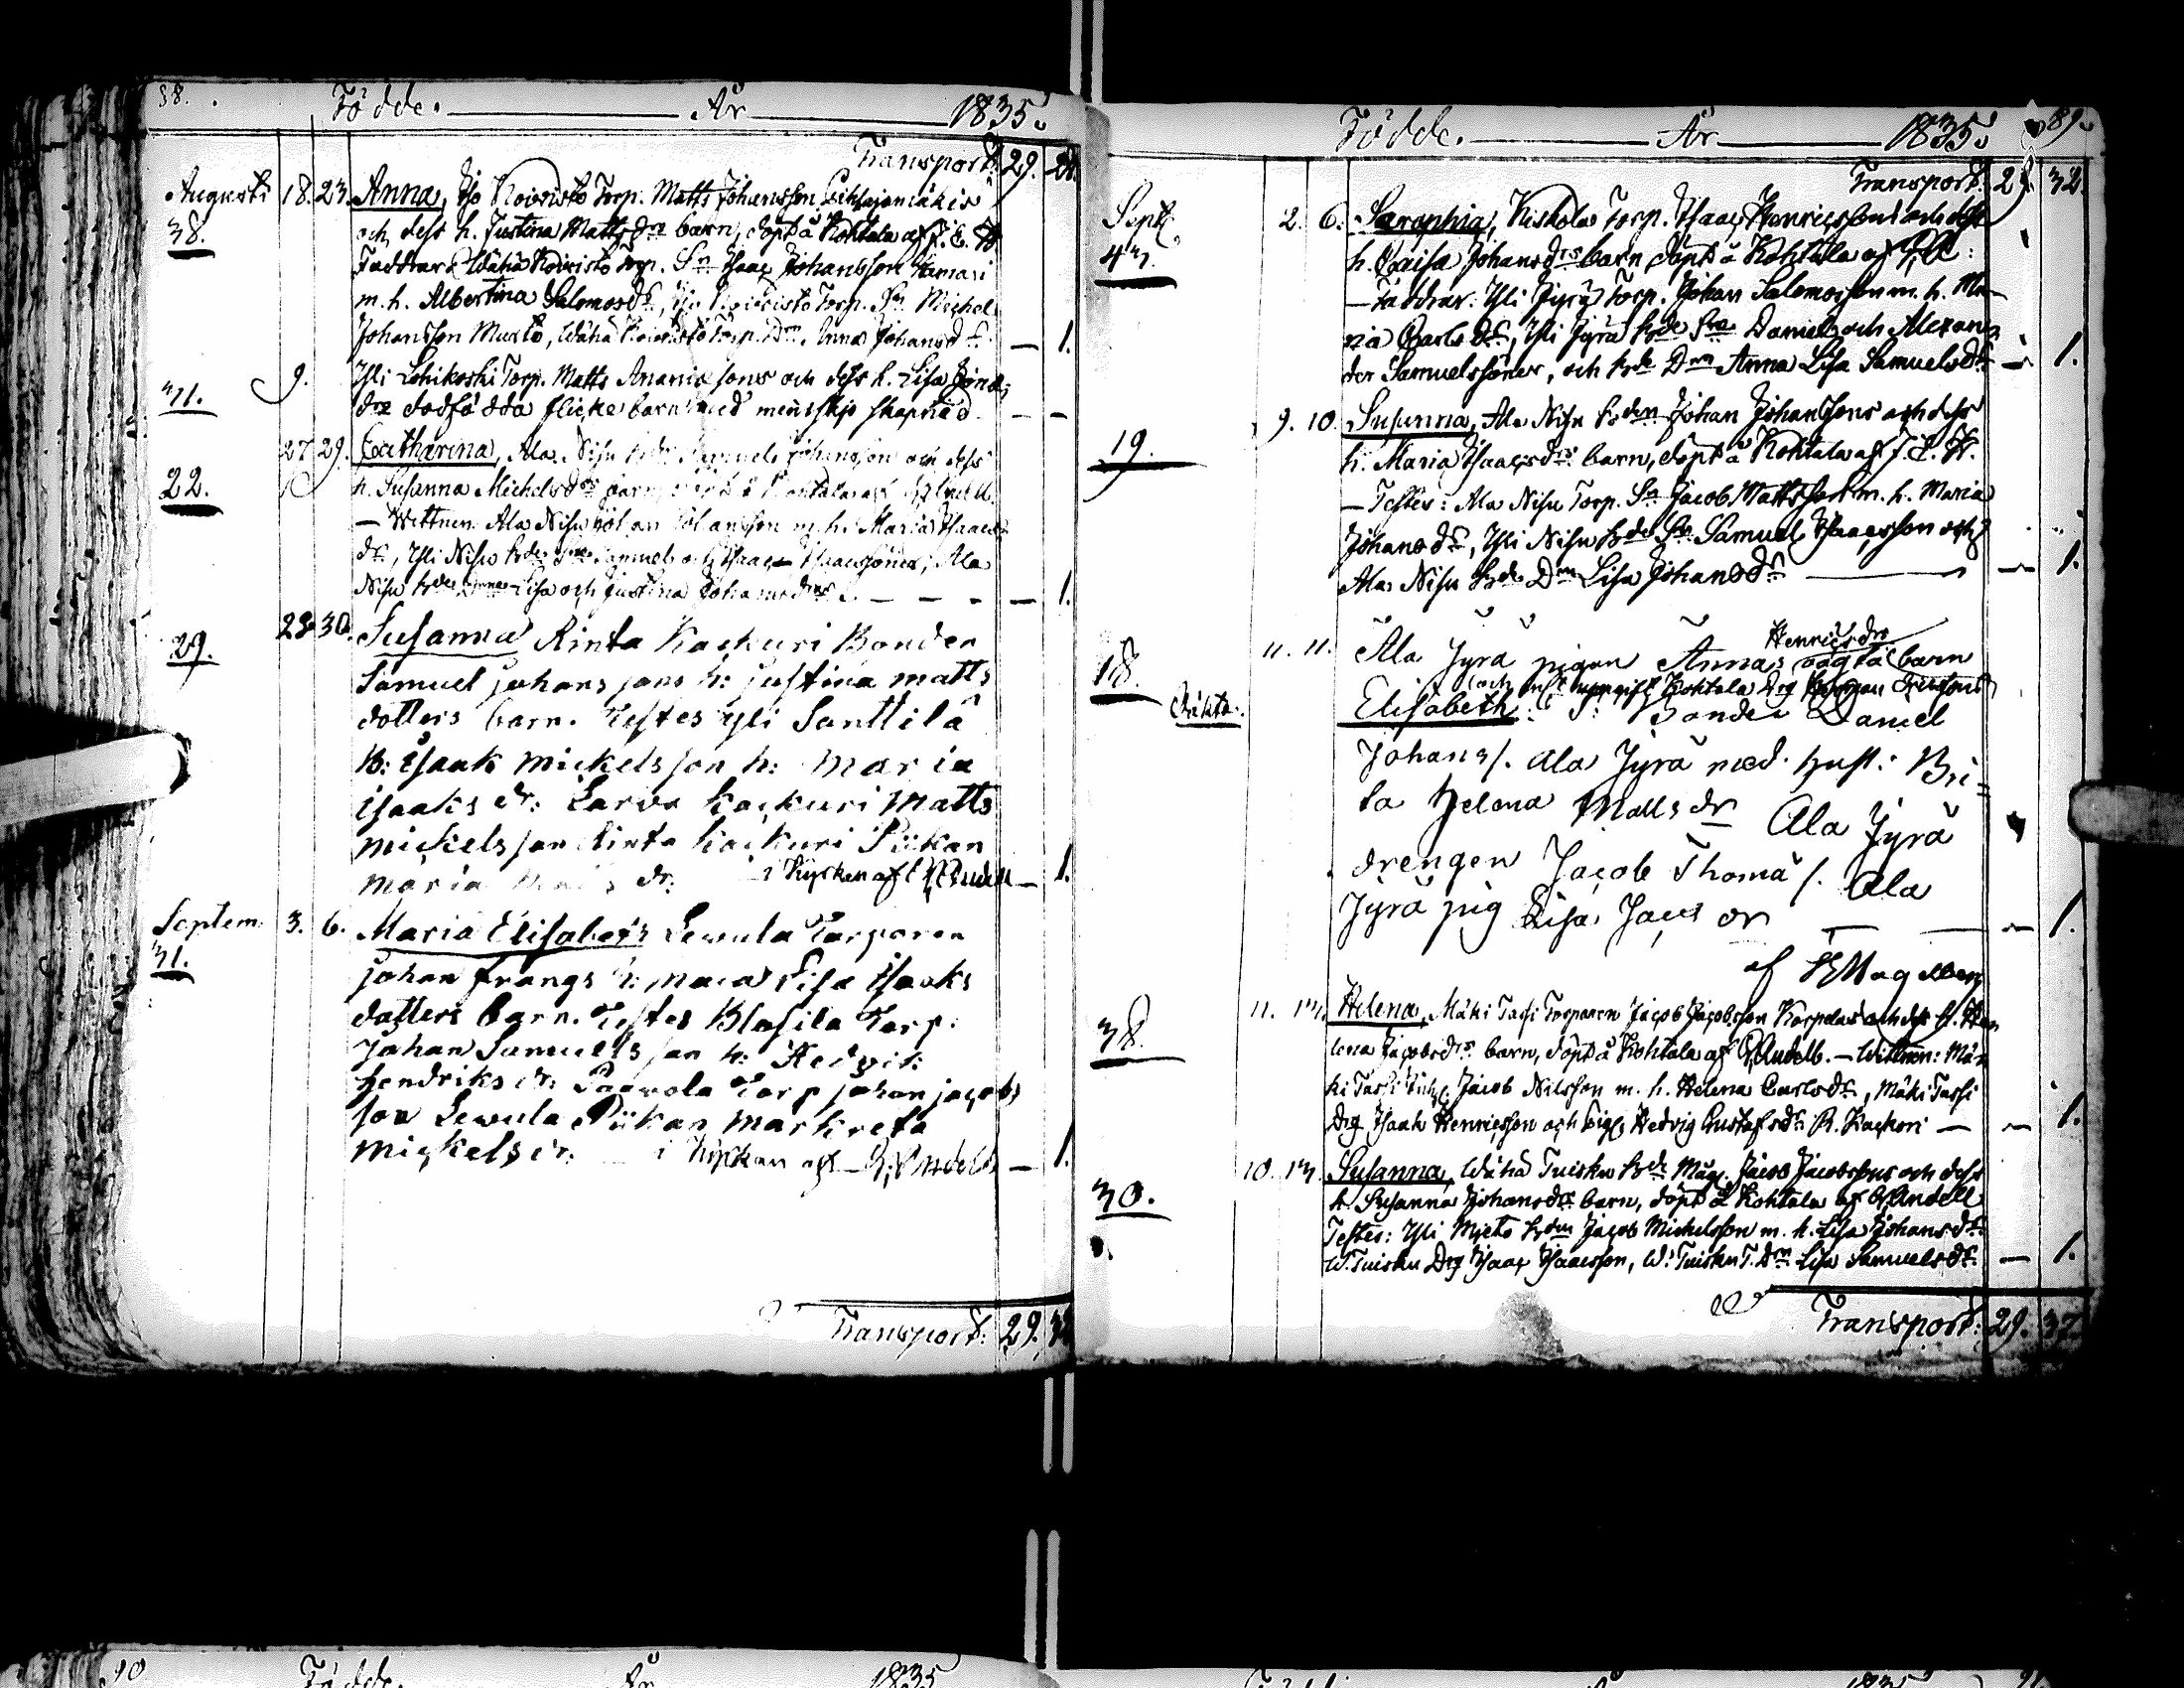 88.
Födde. År 1835.
Transport: 29. 28.
Augusti 18. 23. Anna, Iso Koivisto Torp. Matts Johansson
38.
och dess h. Justina Matts dr barn, döpt å Kohtala af J. E. W.
Faddrar: Wähä Koivisto Torp. Sn Isaac Johansson
m. h. Albertina Salomos dr, Iso Koivisto Torp. Sn Michel
Johansson Murto, Wähä Koivisto Torp. Dm Anna Johans dr — 1.
31. 9. Yli Lohikoski Torp. Matts Ananiæ sons och dess h. Lisa
drs dödfödda flicke barn med menskjo skapnad — —
27. 29. Catharina, Ala Nisu Samuel Johansson och dess
22.
h. Susanna Michels drs barn, döpt å Kohtala af
— Wittnen: Ala Nisu Johan Johansson m. h. Maria Isaacs
dr, Yli Nisu Samuel och Isaac Isaacssöner, Ala
Nisu Lisa och Justina Johans drar — — — — 1.
28. 30. Susanna Rinta Kackuri Bonden
29.
Samuel johans sons h: justina matts
dotters barn. Testes yli Santtilä
B: isaak mickelsson h: maria
isaaks dr: Larva kackuri matts
mickelsson Rinta kackuri Piikan
maria dr: i kyrkan af — 1.
Septem. 3. 6. Maria Elisabet Lewula Torparen
31.
johan frangs h: maia Lisa isaaks
dotters barn. Testes Blasila Torp.
johan Samuelsson h: Hedvik
hendriks dr: Paavola Torp johan jacobs
son Lewula Piikan markreta
mickels dr. i kyrkan af — 1.
Transport: 29. 32.
Födde. År 1835. 89.
Transport: 29. 32.
Sept. 2. 6. Seraphia, Kiskola Torp. Isaac Henricssons och dess
43.
h. Caisa Johans drs barn, döpt å Kohtala af
— Faddrar: Yli Jyrä Torp. Johan Salomosson m. h. Ma-
ria Carls dr, Yli Jyrä Daniel och Alexan-
der Samuelssöner, och Dm Anna Lisa Samuels dr — 1.
9. 10. Susanna, Ala Nisu Johan Johansons och dess
19.
h. Maria Isaacs drs barn, döpt å Kohtala af J. E. W.
— Testes: Ala Nisu Torp. Sn Jacob Mattsson m. h. Maria
Johans dr, Yli Nisu Sn Samuel Isaacsson och
Ala Nisu Dm Lisa Johans dr — — 1.
Henrics drs
11. 11. Ala Jyrä pigan Annas oägta barn
18.
Oäkta.
Elisabeth: T: Bonden Daniel
Johans s. Ala Jyrä med hust: Bri-
ta Helena Matts dr Ala Jyrä
drengen Jacob Thomæ s. Ala
Jyrä pig Lisa Jacs dr — — 1.
af
11. 13. Helena, Mäki Tassi Torparen Jacob Jacobsson Korpelas och dess h. He-
38.
lena Jacobs drs barn, döpt å Kohtala af Andell. — Wittnen: Mä-
ki Tassi Jacob Nilsson m. h. Helena Carls dr, Mäki Tassi
Drg Isaak Henricsson och Pig. Hedvig Gustafs dr R. Kackori — — 1.
10. 13. Susanna, Wähä Tuisku Måg. Jacob Jacobssons och dess
30.
h. Susanna Johans drs barn, döpt å Kohtala af Andell
Testes: Yli Mieto Jacob Michelsson m. h. Lisa Johans dr
W. Tuisku Drg Isaac Isaacsson, W. Tuisku T. Dm Lisa Samuels dr — 1.
Transport: 29. 37.
90 Födde. År 1835
1835